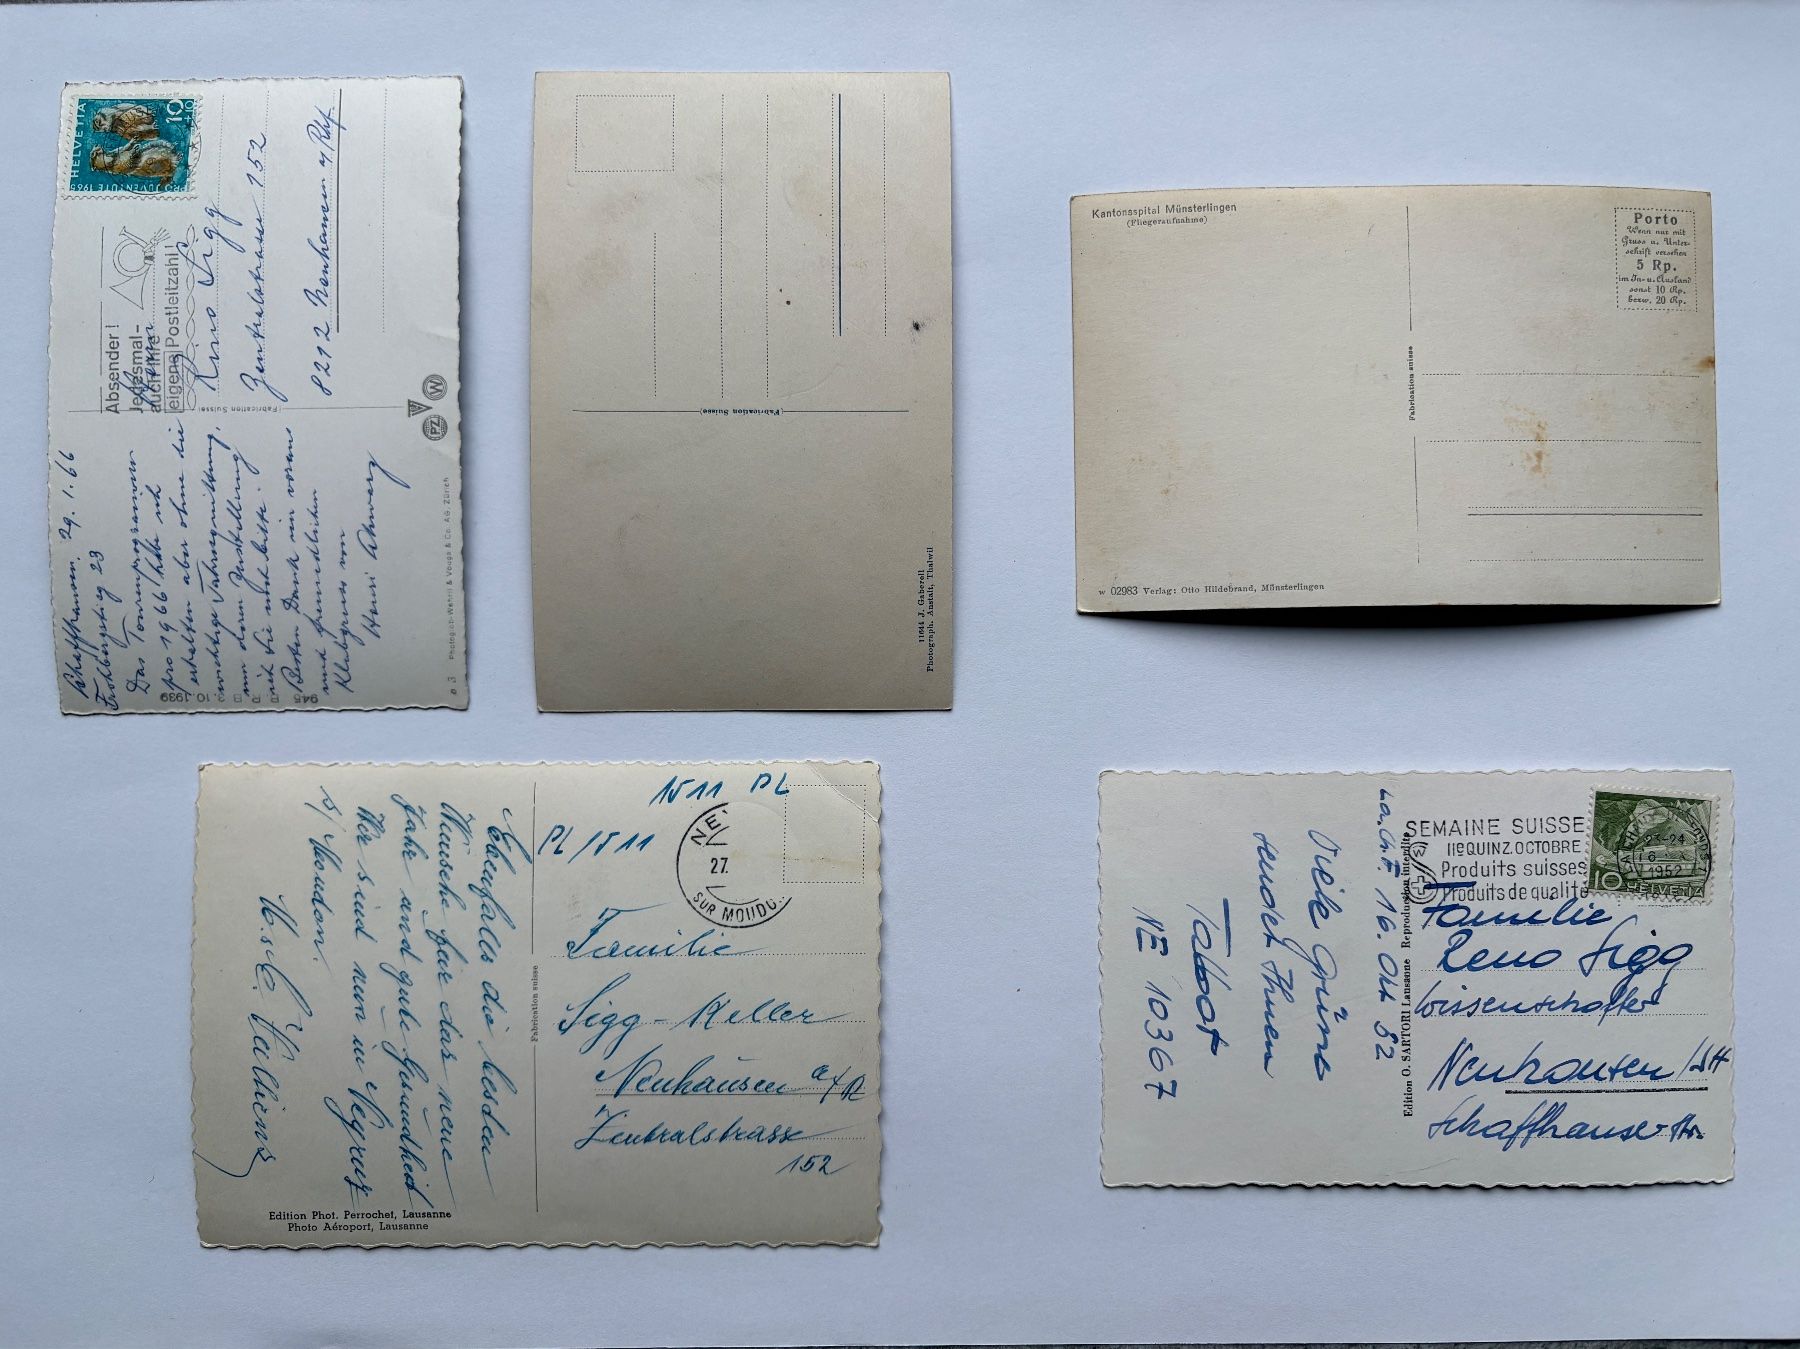 HELVETIA
10
+10
PRO JUVENTUTE 1965
Absender!
Jedesmal
auch Ihre
eigene Postleitzahl!
Herrn
Reno Sigg
Zentralstrasse 152
8212 Neuhausen a/Rhf.
(Fabrication Suisse)
PZ
W
Schaffhausen 29.1.66
Frohbergsteig 23
Das Tourenprogramm
pro 1966 habe ich
erhalten aber ohne die
wichtige Jahresquittung,
um deren Zustellung
ich Sie noch bitte.
Besten Dank im voraus
und freundlichen
Klubgruss von
Henri
945 A.R.B. 3.10.1939
Photoglob-Wehrli & Vouga & Co. AG. Zürich
(Fabrication Suisse)
11644 J. Gaberell
Photograph. Anstalt, Thalwil
Kantonsspital Münsterlingen
(Fliegeraufnahme)
Porto
Wenn nur mit
Gruss u. Unter-
schrift versehen
5 Rp.
im In- u. Ausland
sonst 10 Rp.
bezw. 20 Rp.
Fabrication suisse
w 02983 Verlag: Otto Hildebrand, Münsterlingen
Ebenfalls die besten
Wünsche für das neue
Jahr und gute Gesundheit
Wir sind nun in Neyruz
s/Moudon.
Edition Phot. Perrochet, Lausanne
Photo Aéroport, Lausanne
Fabrication suisse
1511 PL
PL 1511
27.
SUR MOUDO
Familie
Sigg-Keller
Neuhausen a/R
Zentralstrasse
152
La Ch. F. 16. Okt 52
Viele Grüsse
sendet Ihnen
Talbot
NE 10367
Edition O. SARTORI Lausanne Reproduction interdite
SEMAINE SUISSE
IIe QUINZ. OCTOBRE
Produits suisses
Produits de qualité
23-24
1952
10 HELVETIA
Familie
Reno Sigg
Neuhausen/SH
Schaffhauser-Str.